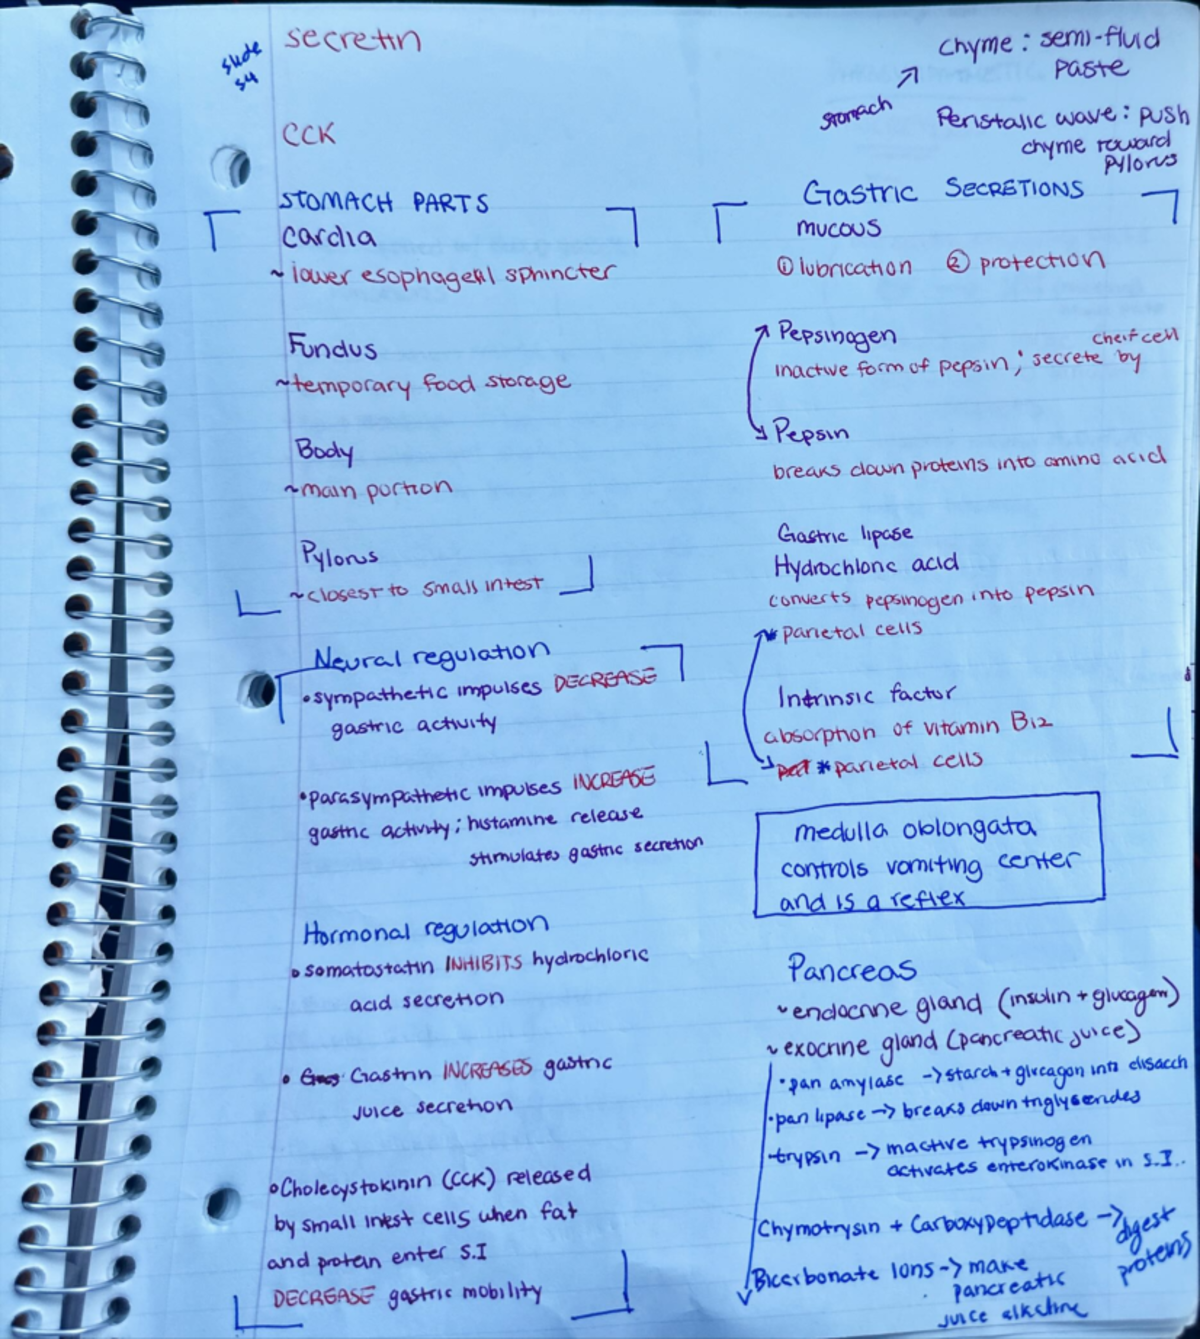 slide
54
secretin
CCK
chyme: semi-fluid
paste
stomach
Peristalic wave: push
chyme toward
pylorus
STOMACH PARTS
Cardia
~ lower esophageal sphincter
Fundus
~temporary food storage
Body
~main portion
Pylorus
~closest to small intest
Neural regulation
•sympathetic impulses DECREASE
gastric activity
•parasympathetic impulses INCREASE
gastric activity; histamine release
stimulates gastric secretion
Hormonal regulation
•somatostatin INHIBITS hydrochloric
acid secretion
• Gastrin INCREASES gastric
juice secretion
•Cholecystokinin (CCK) released
by small intest cells when fat
and protein enter S.I
DECREASE gastric mobility
Gastric SECRETIONS
mucous
① lubrication ② protection
Pepsinogen
cheif cell
inactive form of pepsin; secrete by
Pepsin
breaks down proteins into amino acid
Gastric lipase
Hydrochloric acid
converts pepsinogen into pepsin
* parietal cells
Intrinsic factor
absorption of vitamin B12
* parietal cells
medulla oblongata
controls vomiting center
and is a reflex
Pancreas
~endocrine gland (insulin + glucagon)
~ exocrine gland (pancreatic juice)
•pan amylase -> starch + glycagon into disacch
•pan lipase -> breaks down triglycerides
-trypsin -> inactive trypsinogen
activates enterokinase in S.I..
Chymotrysin + Carboxypeptidase -> digest
proteins
Bicarbonate Ions -> make
pancreatic
juice alkaline